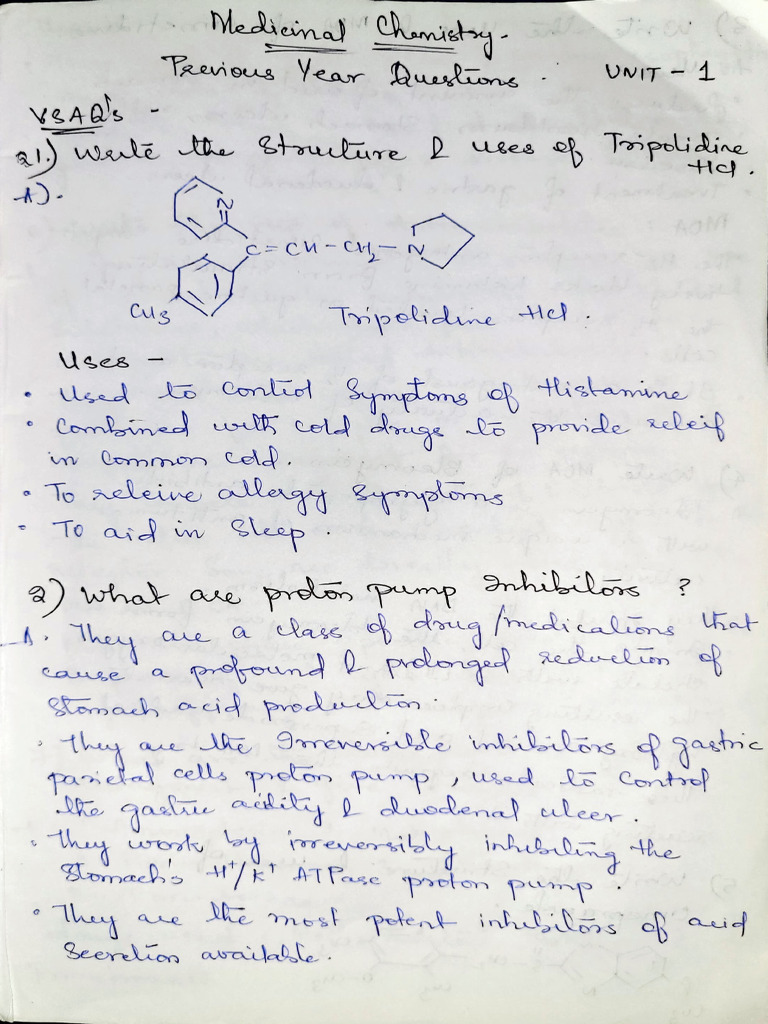 Medicinal Chemistry.
Previous Year Questions. UNIT - 1
VSAQ's -
Q1.) Write the Structure & uses of Tripolidine HCl.
A).
N
C = CH - CH2 - N
CH3
Tripolidine HCl.
Uses -
• Used to control Symptoms of Histamine
• Combined with cold drugs to provide releif
in common cold.
• To releive allergy Symptoms
• To aid in Sleep.
2) What are proton pump Inhibitors ?
A. They are a class of drug/medications that
cause a profound & prolonged reduction of
Stomach acid production.
• They are the Irreversible inhibitors of gastric
parietal cells proton pump, used to control
the gastric acidity & duodenal ulcer.
• They work by irreversibly inhibiting the
Stomach's H+/K+ ATPase proton pump.
• They are the most potent inhibitors of acid
Secretion available.